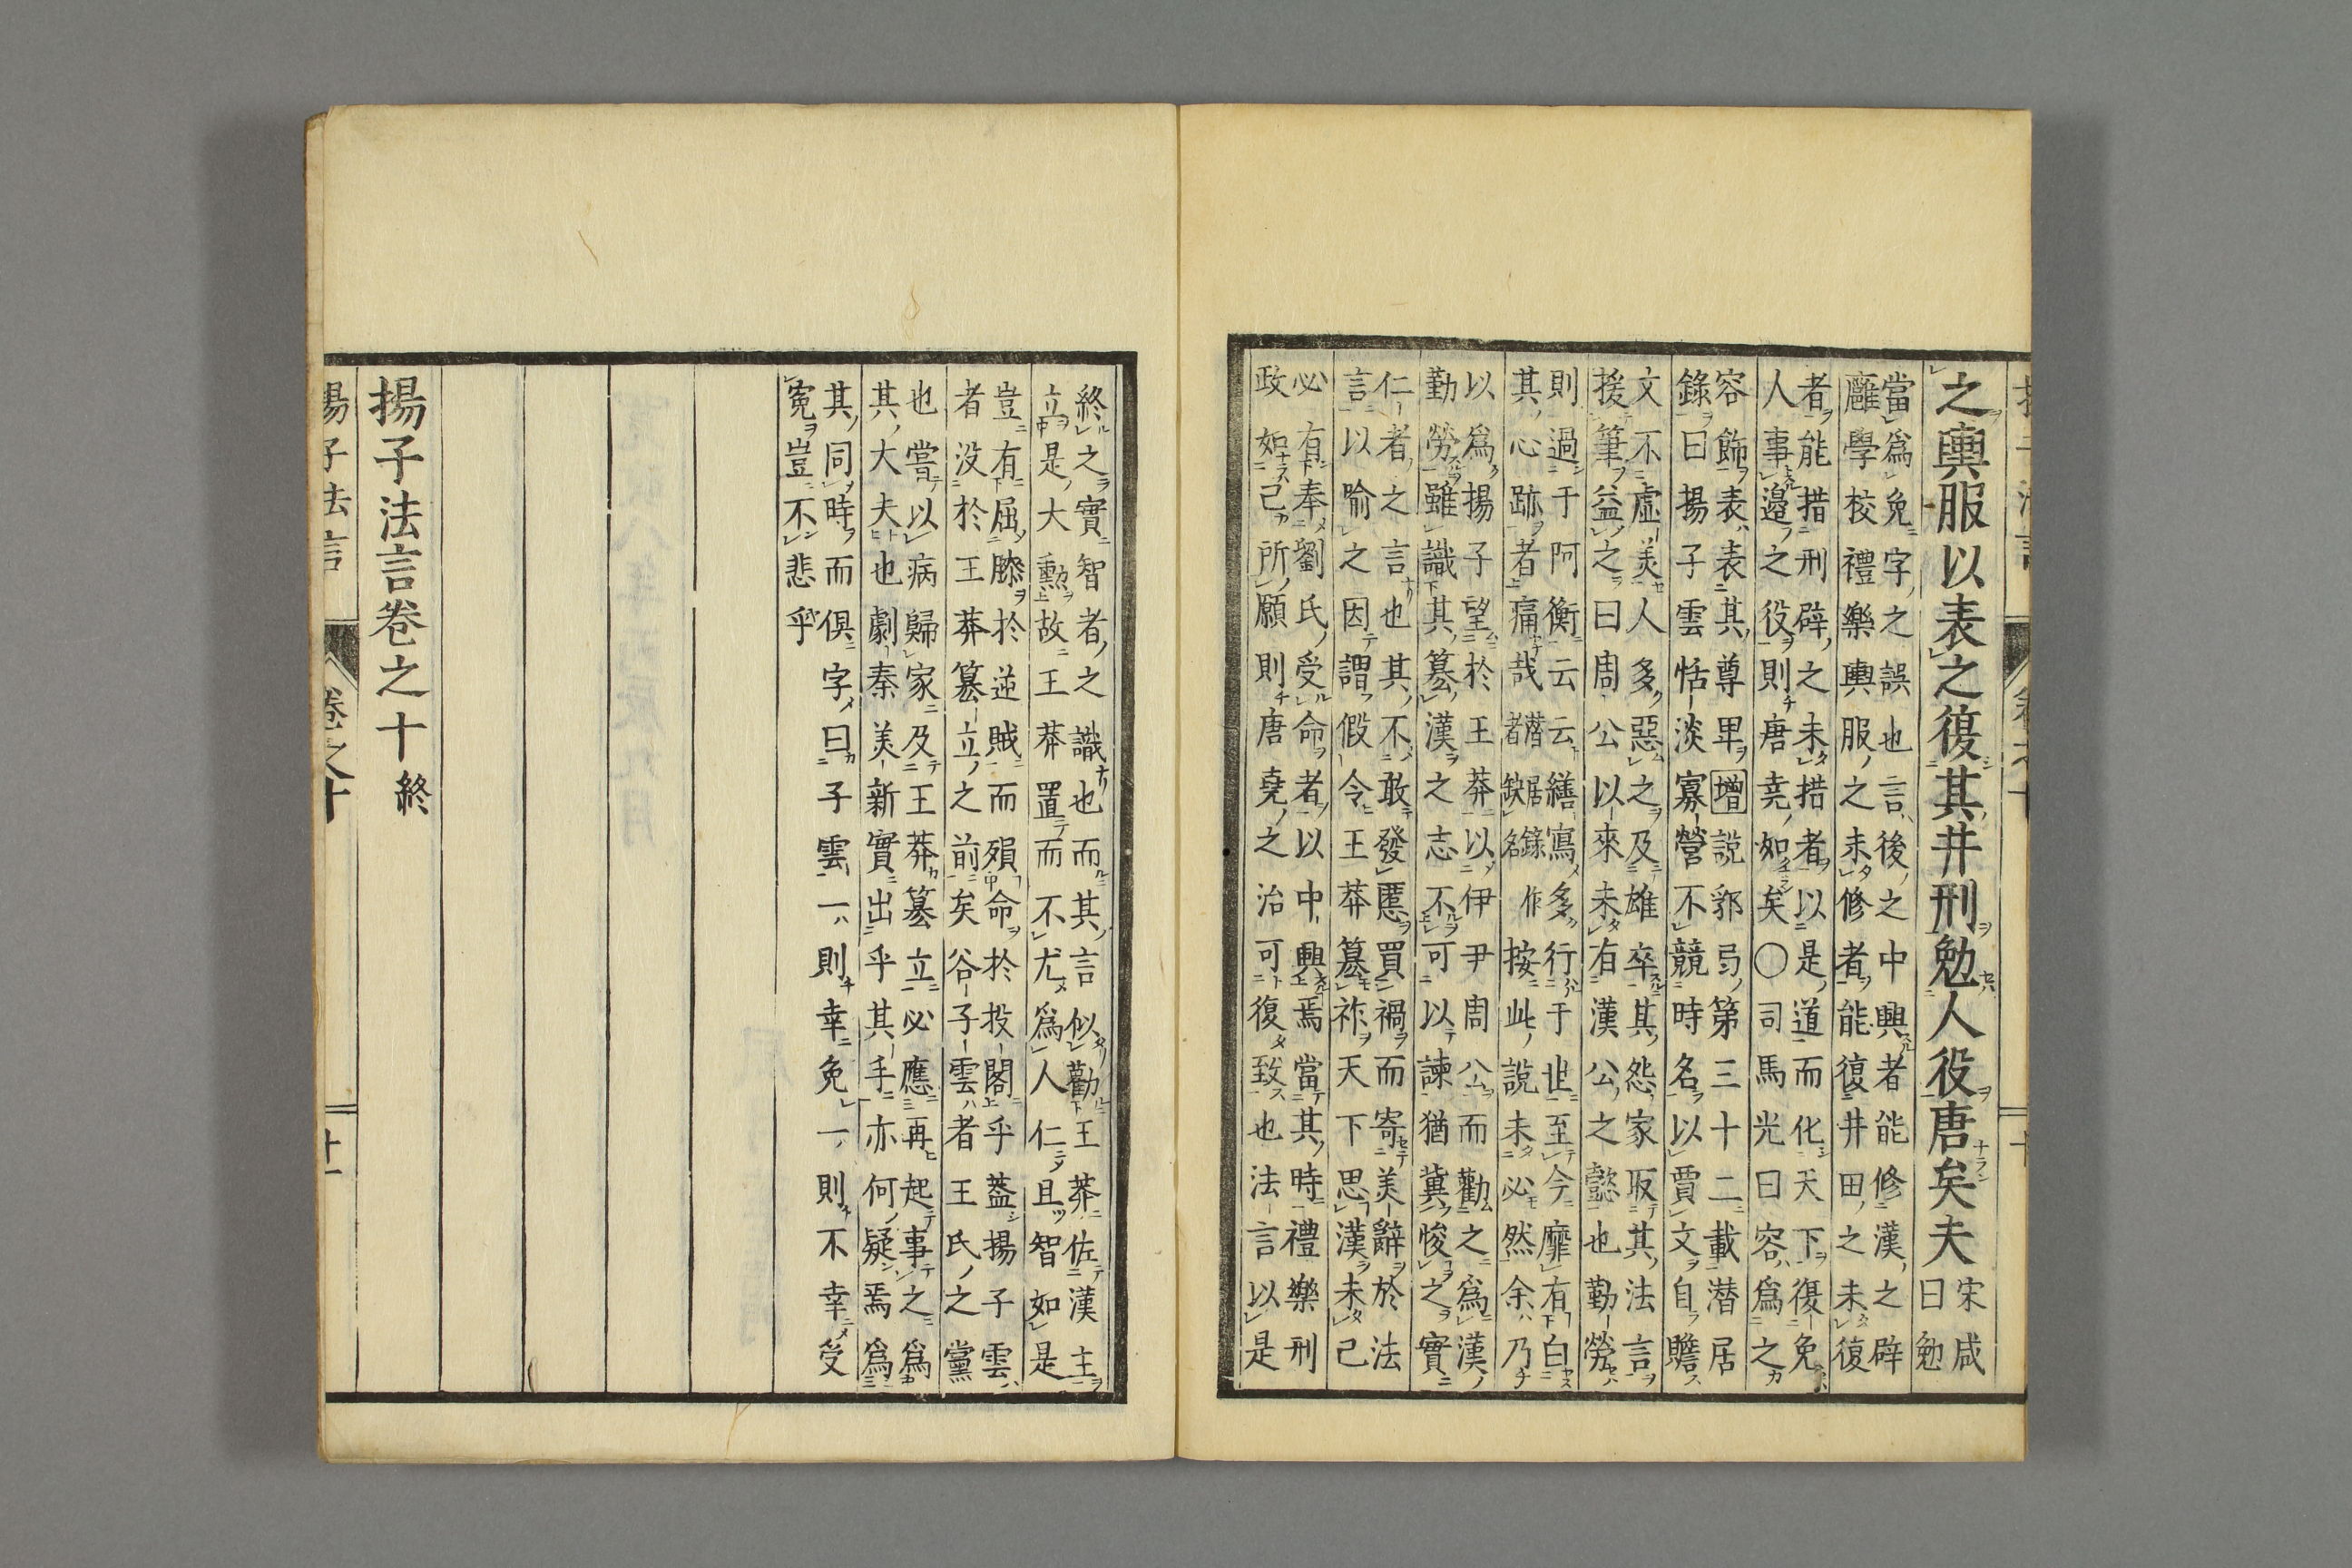 之輿服以表之復其井刑勉人役唐矣夫
宋咸
曰勉
當爲免字之誤也言後之中興者能修漢之辟
廱學校禮樂輿服之未修者能復井田之未復
者能措刑辟之未措者以是道而化天下復免
人事邊之役則唐堯如矣〇司馬光曰容爲之
容飾表表其尊卑增說郛弓第三十二載潜居
錄曰揚子雲恬淡寡營不競時名以賈文自贍
文不虛美人多惡之及雄卒其怨家取其法言
援筆益之曰周公以來未有漢公之懿也勤勞
則過于阿衡云云繕寫多行于世至今靡有白
其心跡者痛哉
潜居錄作
者缺名
按此說未必然余乃
以爲揚子望於王莽以伊尹周公而勸之爲漢
勤勞雖識其篡漢之志不可以諫猶冀悛之實
仁者之言也其不敢發慝買禍而寄美辭於法
言以喻之因謂假令王莽篡祚天下思漢未已
必有奉劉氏受命者以中興焉當其時禮樂刑
政如己所願則唐堯之治可復致也法言以是
終之實智者之識也而其言似勸王莽佐漢主
立是大勳故王莽置而不尤爲人仁且智如是
豈有屈膝於逆賊而殞命於投閣乎蓋揚子雲
者没於王莽篡立之前矣谷子雲者王氏之黨
也嘗以病歸家及王莽篡立必應再起事之爲
其大夫也劇秦美新實出乎其手亦何疑焉爲
其同時而俱字曰子雲一則幸免一則不幸受
冤豈不悲乎
揚子法言卷之十終
揚子法言 卷之十 十一